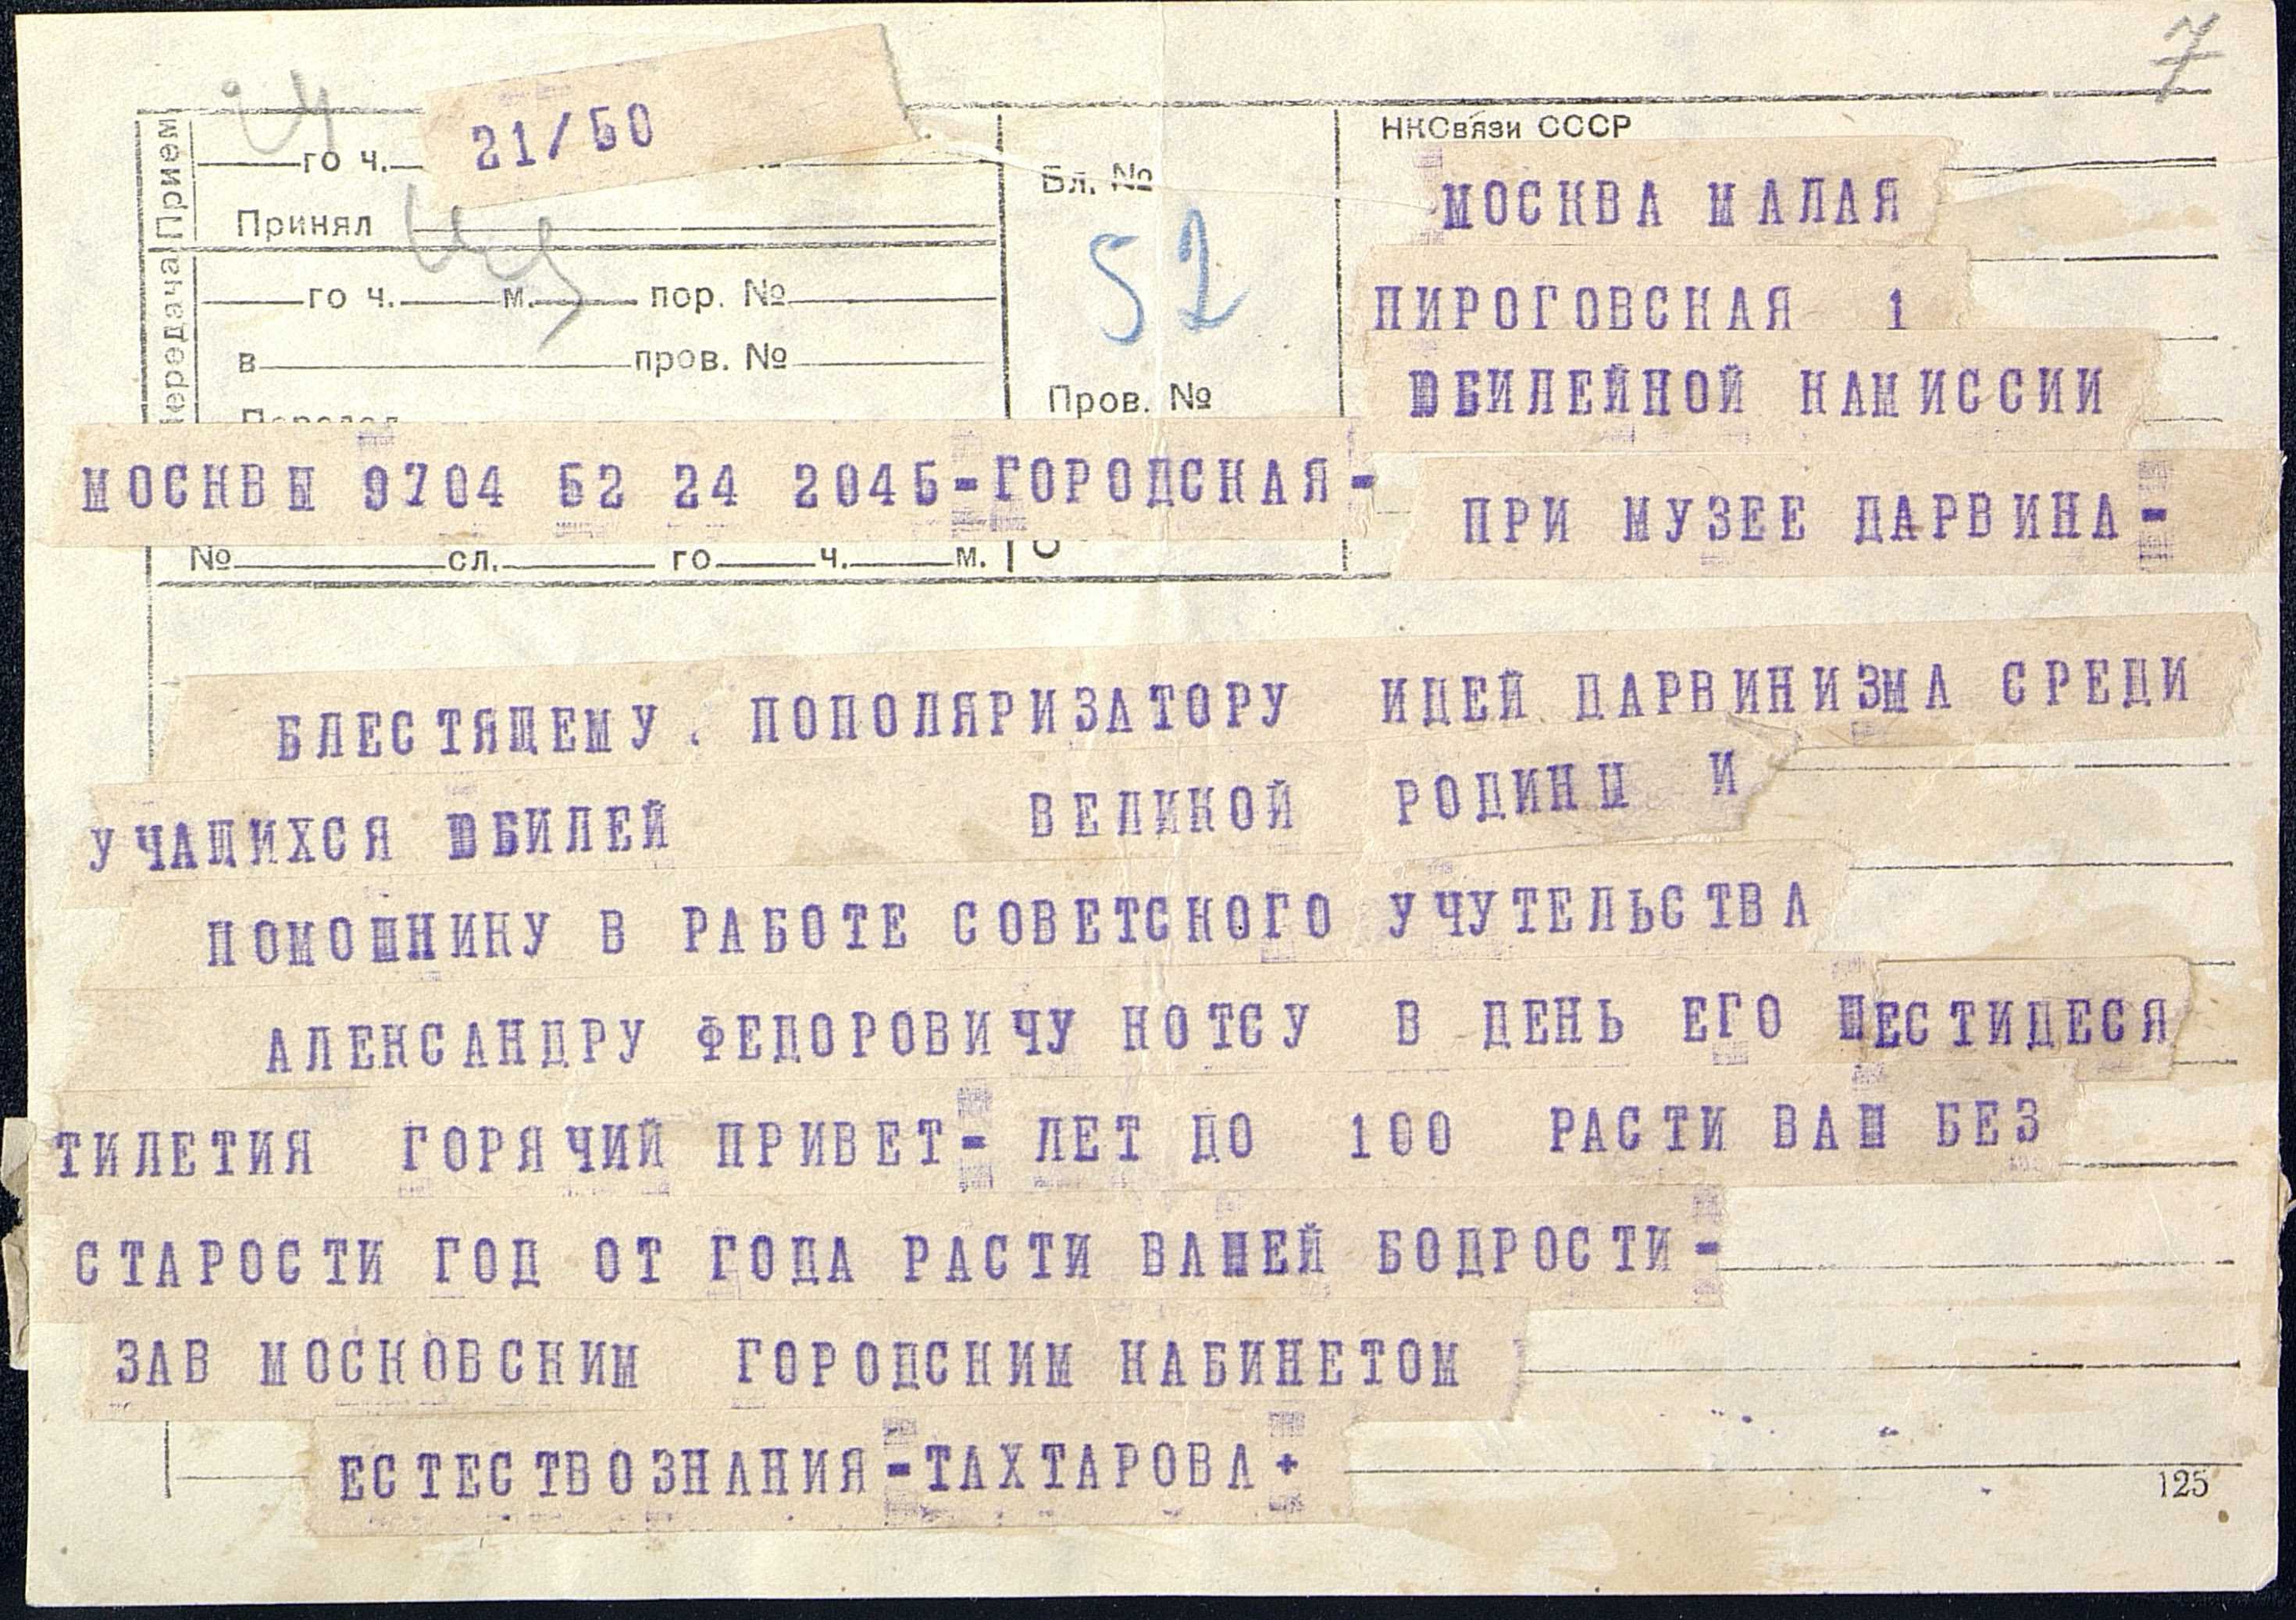 7
НКСвязи СССР
Прием
го ч.
21/50
Бл. №
МОСКВА МАЛАЯ
Принял
52
ПИРОГОВСКАЯ 1
Передача
го ч. м. пор. №
в пров. №
Пров. №
ЮБИЛЕЙНОЙ КАМИССИИ
Передал
МОСКВЫ 9704 52 24 2045=ГОРОДСКАЯ=
ПРИ МУЗЕЕ ДАРВИНА=
№ сл. го ч. м.
БЛЕСТЯЩЕМУ ПОПОЛЯРИЗАТОРУ ИДЕЙ ДАРВИНИЗМА СРЕДИ
УЧАЩИХСЯ ЮБИЛЕЙ ВЕЛИКОЙ РОДИНЫ И
ПОМОШНИКУ В РАБОТЕ СОВЕТСКОГО УЧУТЕЛЬСТВА
АЛЕКСАНДРУ ФЕДОРОВИЧУ КОТСУ В ДЕНЬ ЕГО ШЕСТИДЕСЯ
ТИЛЕТИЯ ГОРЯЧИЙ ПРИВЕТ= ЛЕТ ДО 100 РАСТИ ВАШ БЕЗ
СТАРОСТИ ГОД ОТ ГОДА РАСТИ ВАШЕЙ БОДРОСТИ=
ЗАВ МОСКОВСКИМ ГОРОДСКИМ КАБИНЕТОМ
ЕСТЕСТВОЗНАНИЯ=ТАХТАРОВА+
125